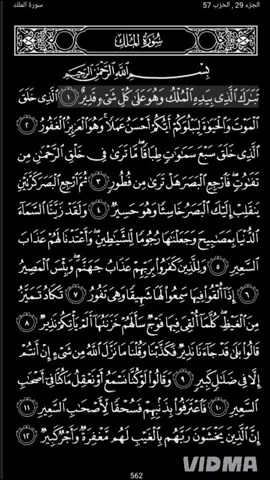 الجزء 29 , الحزب 57
سورة الملك
سُورَةُ المُلْكِ
بِسْمِ ٱللَّهِ ٱلرَّحْمَٰنِ ٱلرَّحِيمِ
تَبَٰرَكَ ٱلَّذِى بِيَدِهِ ٱلْمُلْكُ وَهُوَ عَلَىٰ كُلِّ شَىْءٍ قَدِيرٌ ١ ٱلَّذِى خَلَقَ
ٱلْمَوْتَ وَٱلْحَيَوٰةَ لِيَبْلُوَكُمْ أَيُّكُمْ أَحْسَنُ عَمَلًا وَهُوَ ٱلْعَزِيزُ ٱلْغَفُورُ ٢
ٱلَّذِى خَلَقَ سَبْعَ سَمَٰوَٰتٍ طِبَاقًا مَّا تَرَىٰ فِى خَلْقِ ٱلرَّحْمَٰنِ مِن
تَفَٰوُتٍ فَٱرْجِعِ ٱلْبَصَرَ هَلْ تَرَىٰ مِن فُطُورٍ ٣ ثُمَّ ٱرْجِعِ ٱلْبَصَرَ كَرَّتَيْنِ
يَنقَلِبْ إِلَيْكَ ٱلْبَصَرُ خَاسِئًا وَهُوَ حَسِيرٌ ٤ وَلَقَدْ زَيَّنَّا ٱلسَّمَآءَ
ٱلدُّنْيَا بِمَصَٰبِيحَ وَجَعَلْنَٰهَا رُجُومًا لِّلشَّيَٰطِينِ وَأَعْتَدْنَا لَهُمْ عَذَابَ
ٱلسَّعِيرِ ٥ وَلِلَّذِينَ كَفَرُوا۟ بِرَبِّهِمْ عَذَابُ جَهَنَّمَ وَبِئْسَ ٱلْمَصِيرُ
٦ إِذَآ أُلْقُوا۟ فِيهَا سَمِعُوا۟ لَهَا شَهِيقًا وَهِىَ تَفُورُ ٧ تَكَادُ تَمَيَّزُ
مِنَ ٱلْغَيْظِ كُلَّمَآ أُلْقِىَ فِيهَا فَوْجٌ سَأَلَهُمْ خَزَنَتُهَآ أَلَمْ يَأْتِكُمْ نَذِيرٌ ٨
قَالُوا۟ بَلَىٰ قَدْ جَآءَنَا نَذِيرٌ فَكَذَّبْنَا وَقُلْنَا مَا نَزَّلَ ٱللَّهُ مِن شَىْءٍ إِنْ أَنتُمْ
إِلَّا فِى ضَلَٰلٍ كَبِيرٍ ٩ وَقَالُوا۟ لَوْ كُنَّا نَسْمَعُ أَوْ نَعْقِلُ مَا كُنَّا فِىٓ أَصْحَٰبِ
ٱلسَّعِيرِ ١٠ فَٱعْتَرَفُوا۟ بِذَنۢبِهِمْ فَسُحْقًا لِّأَصْحَٰبِ ٱلسَّعِيرِ ١١
إِنَّ ٱلَّذِينَ يَخْشَوْنَ رَبَّهُم بِٱلْغَيْبِ لَهُم مَّغْفِرَةٌ وَأَجْرٌ كَبِيرٌ ١٢
562
VIDMA